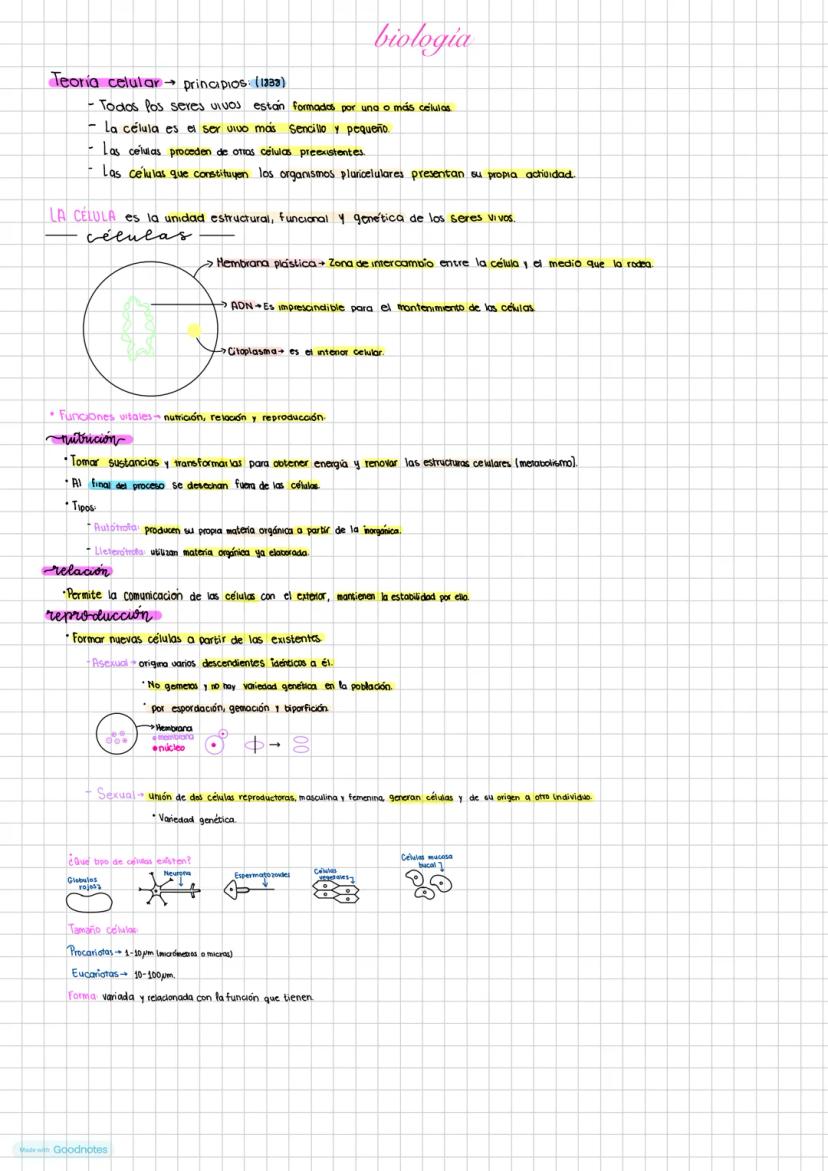 biología
Teoría celular → principios: (1339)
- Todos los seres vivos están formados por una o más células
- La célula es el ser vivo más sencillo y pequeño.
- Las células proceden de otras células preexistentes.
- Las células que constituyen los organismos pluricelulares presentan su propia actividad.
LA CÉLULA es la unidad estructural, funcional y genética de los seres vivos.
células
Membrana plástica → Zona de intercambio entre la célula y el medio que la rodea.
ADN → Es imprescindible para el mantenimiento de las células
Citoplasma → es el interior celular.
• Funciones vitales → nutrición, relación y reproducción.
nutrición
• Tomar sustancias y transformarlas para obtener energía y renovar las estructuras celulares (metabolismo).
• Al final del proceso se desechan fuera de las células.
• Tipos:
- Autótrofa: producen su propia materia orgánica a partir de la inorgánica.
- Heterótrofa: utilizan materia orgánica ya elaborada.
relación
• Permite la comunicación de las células con el exterior, mantienen la estabilidad por ello.
reproducción
• Formar nuevas células a partir de las existentes.
- Asexual → origina varios descendientes idénticos a él.
• No gemetos y no hay variedad genética en la población.
• por espordación, gemación y biporfición.
→ Membrana
• membrana
• núcleo
- Sexual → unión de dos células reproductoras, masculina y femenina, generan células y de su origen a otro individuo.
• Variedad genética.
¿Qué tipo de células existen?
Glóbulos rojos
Neurona
Espermatozoides
Células vegetales
Células mucosa bucal
Tamaño células:
Procariotas → 1-10 µm (micrómetros o micras)
Eucariotas → 10-100µm.
Forma: variada y relacionada con la función que tienen.
Made with Goodnotes